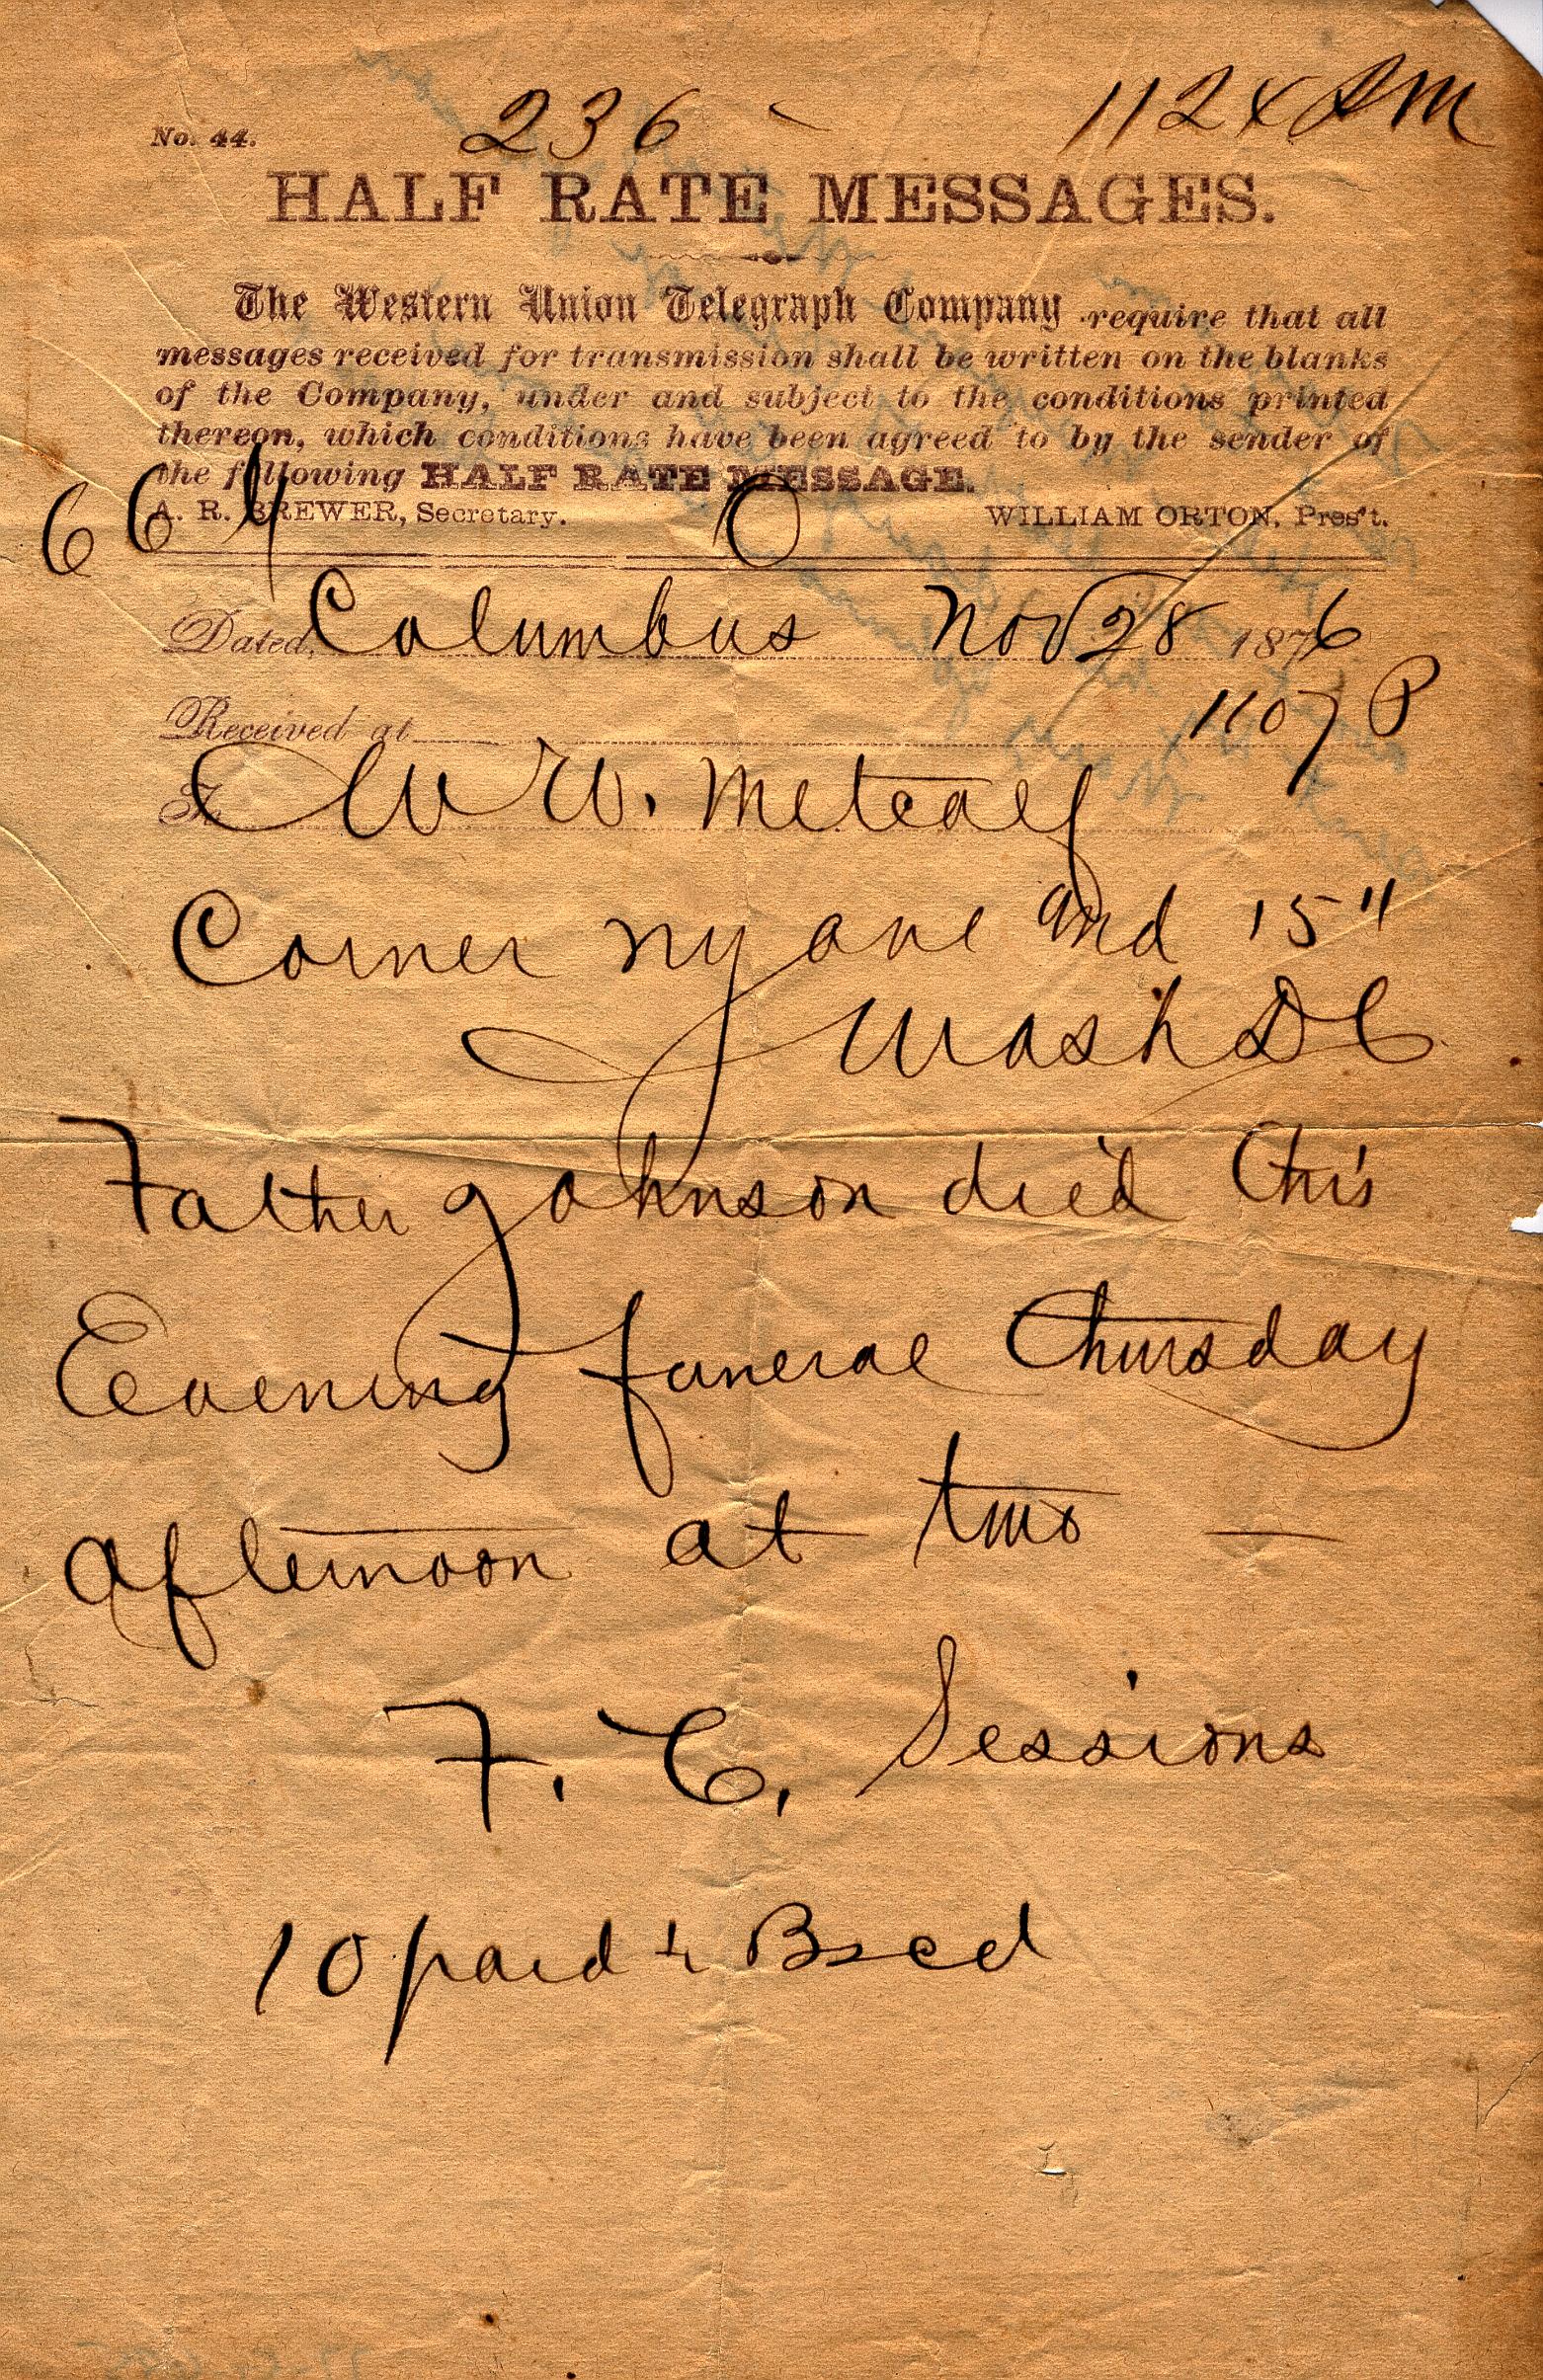 236 - 112 x AM
No. 44.
HALF RATE MESSAGES.
The Western Union Telegraph Company require that all
messages received for transmission shall be written on the blanks
of the Company, under and subject to the conditions printed
thereon, which conditions have been agreed to by the sender of
the following HALF RATE MESSAGE.
A. R. BREWER, Secretary. WILLIAM ORTON, Pres't.
66 O
Dated, Columbus Nov 28 1876
Received at 1107 P
To W W. Metcalf
Corner NY ave and 15"
Wash DC
Father Johnson died this
Evening funeral Thursday
afternoon at two —
F. C. Sessions
10 paid